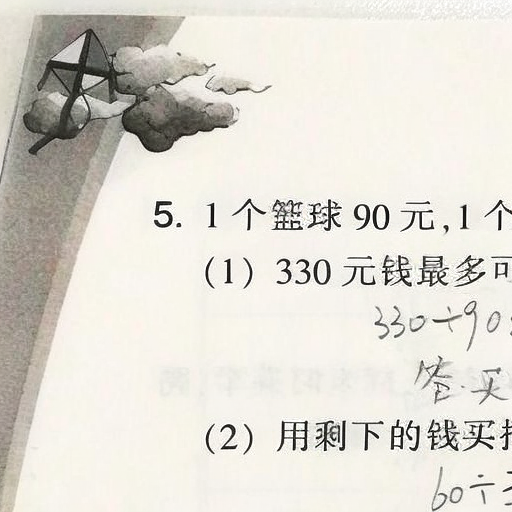 5. 1个篮球90元,1个
(1) 330元钱最多可
330÷90
答买
(2) 用剩下的钱买
60÷